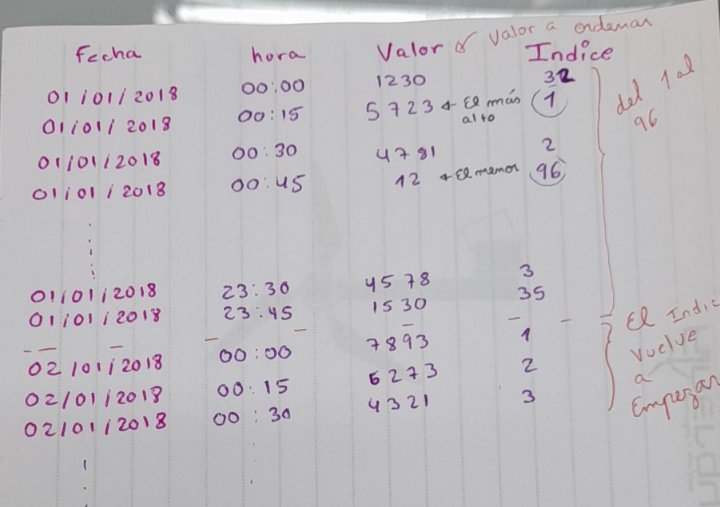 Fecha hora Valor Valor a ordenar Indice
01/01/2018 00:00 1230 32
01/01/2018 00:15 5723 ← El más alto 1
01/01/2018 00:30 4781 2
01/01/2018 00:45 12 ← El menor 96
del 1 al 96
01/01/2018 23:30 4578 3
01/01/2018 23:45 1530 35
02/01/2018 00:00 7893 1
02/01/2018 00:15 6273 2
02/01/2018 00:30 4321 3
El Indic
Vuelve
a
Empezar